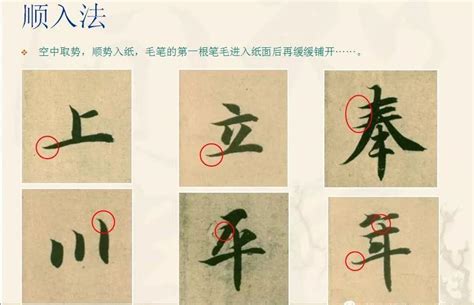 顺入法
空中取势，顺势入纸，毛笔的第一根笔毛进入纸面后再缓缓铺开……。
上 立 奉
川 平 年